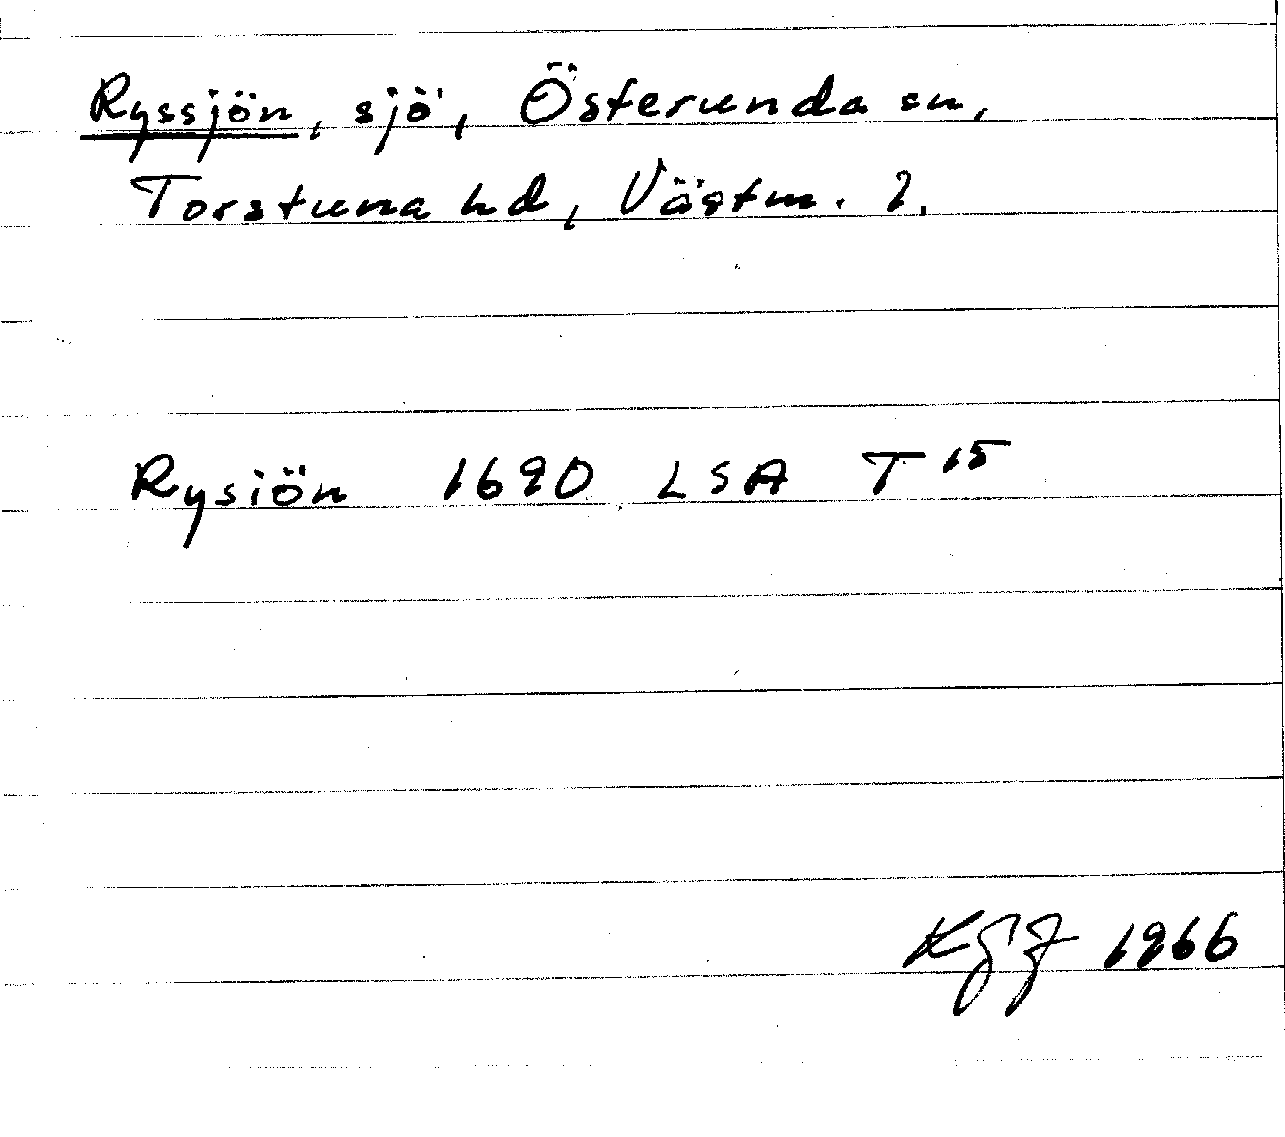 Ryssjön, sjö, Österunda sn,
Torstuna hd, Västm. l.
Rysiön 1690 LSA T 15
1966